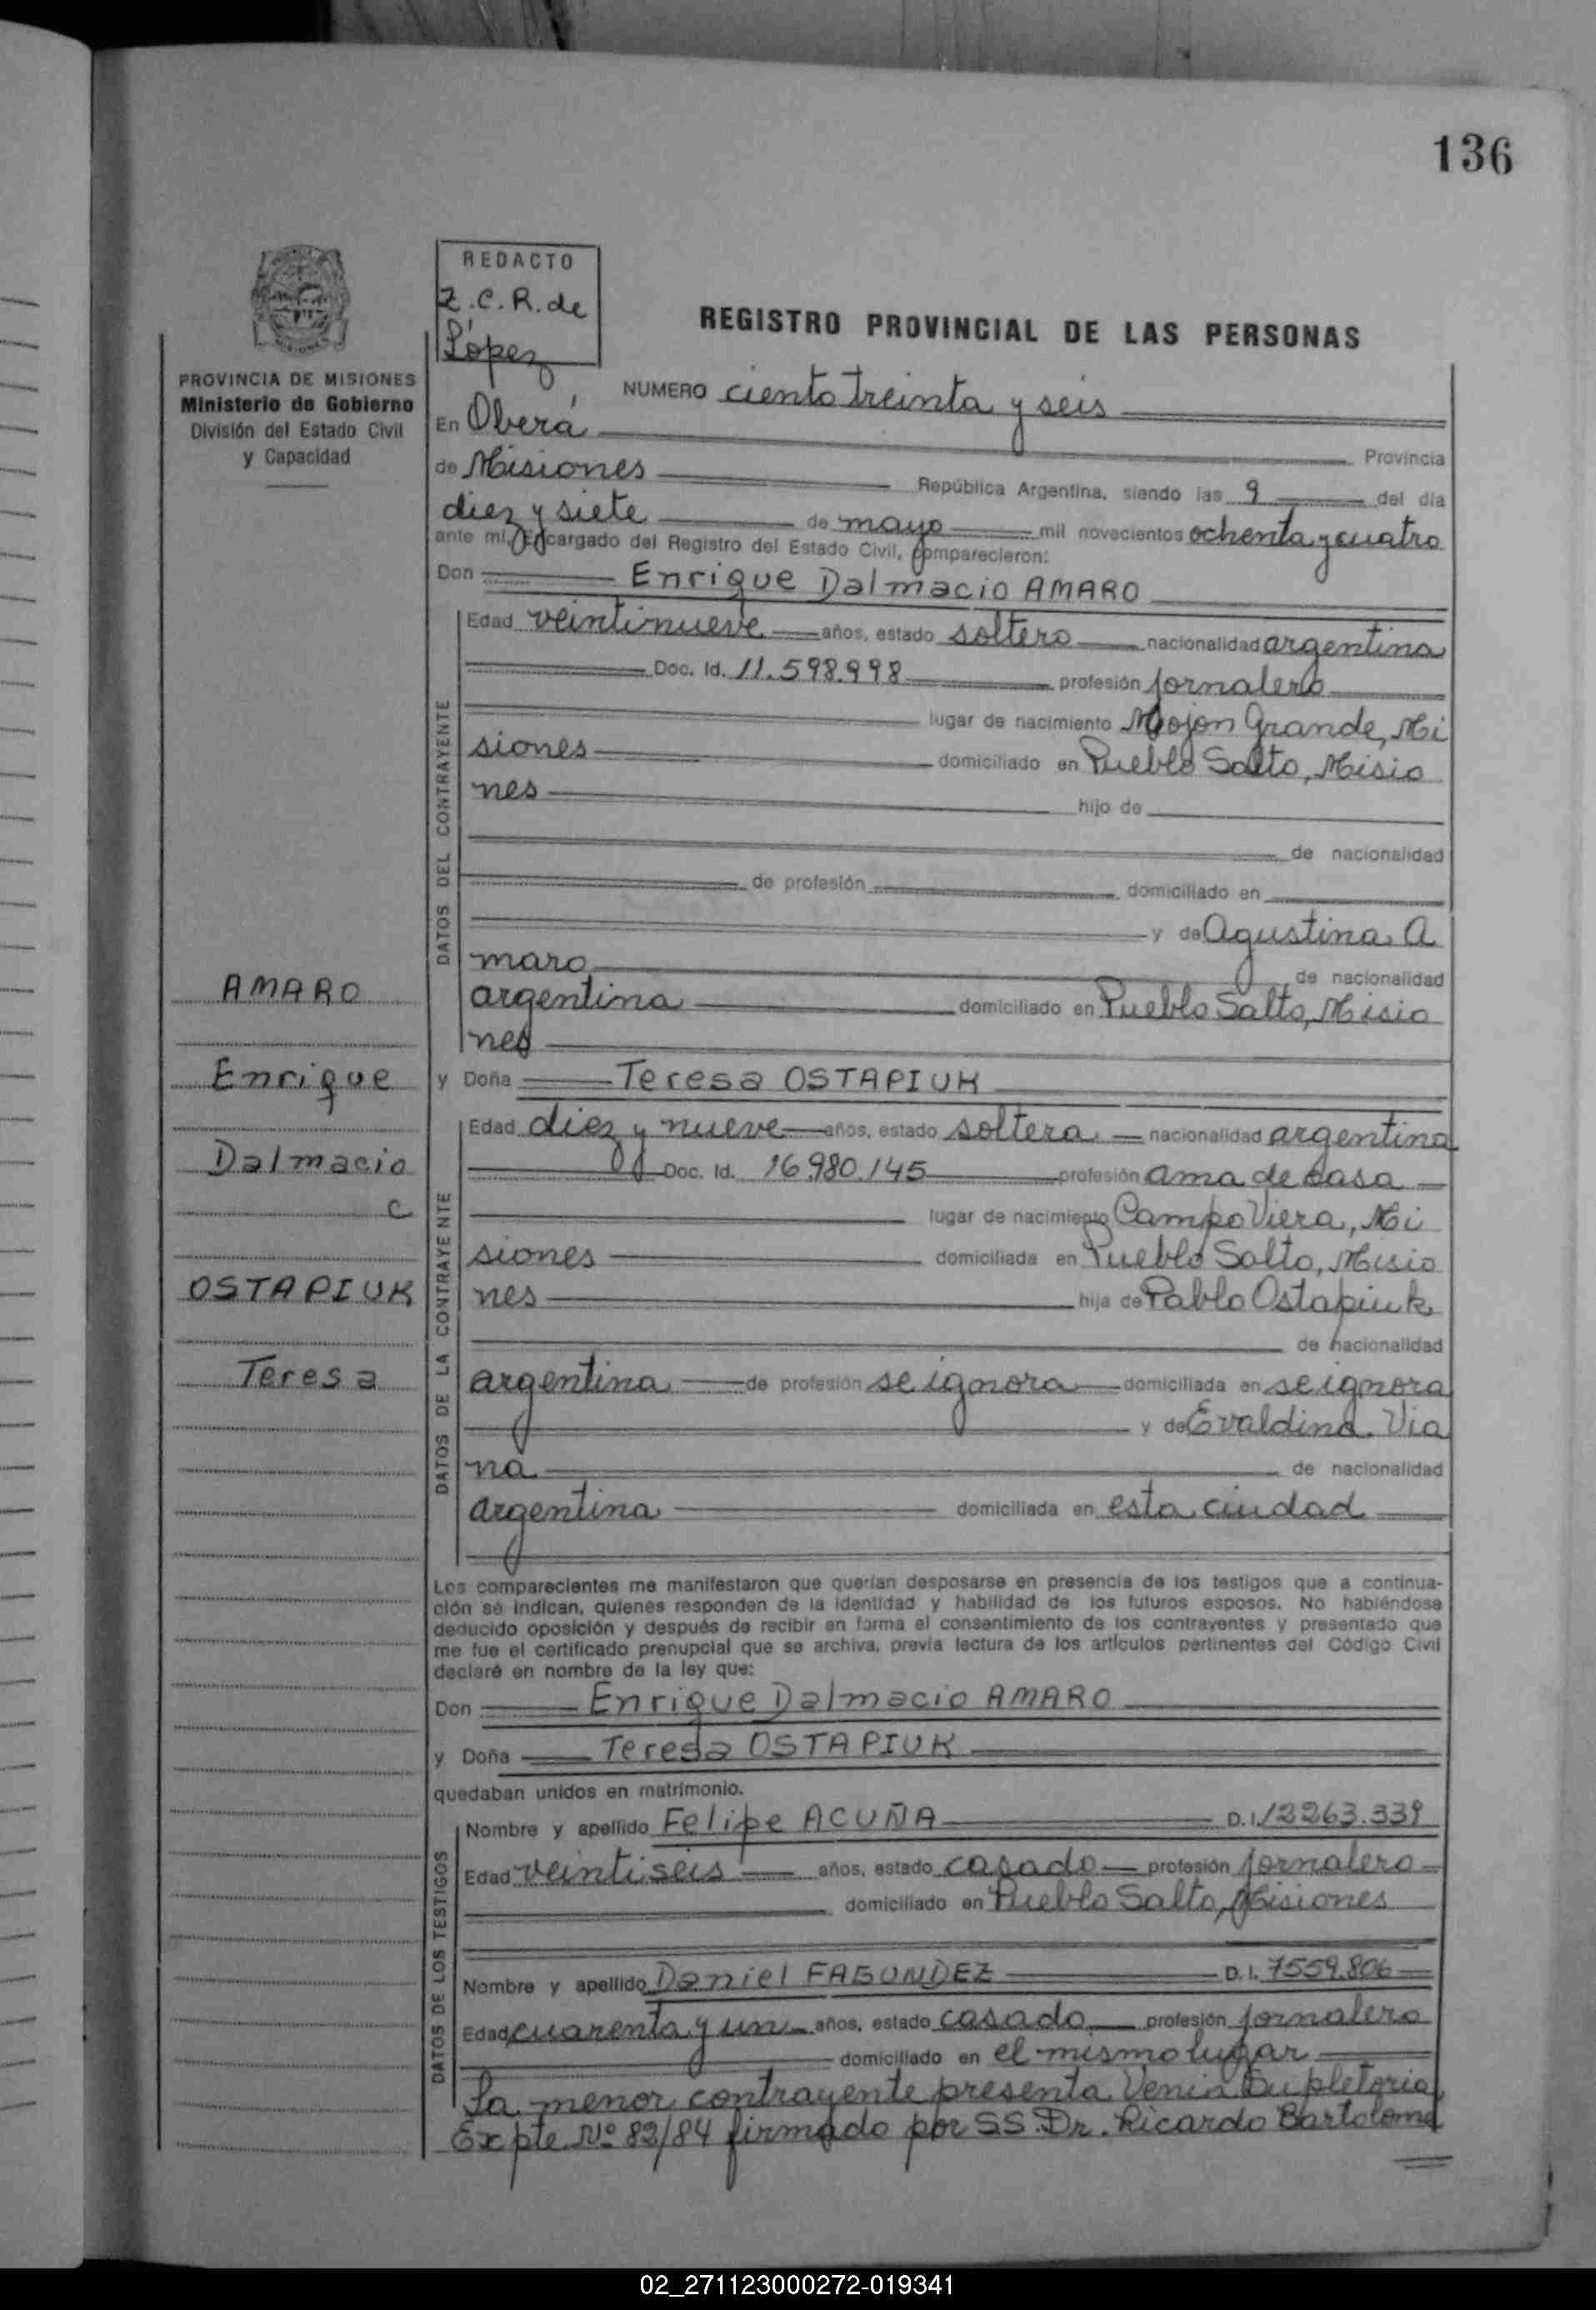 136
REDACTO
Z.C.R. de
López
REGISTRO PROVINCIAL DE LAS PERSONAS
PROVINCIA DE MISIONES
Ministerio de Gobierno
División del Estado Civil
y Capacidad
NUMERO ciento treinta y seis
En Oberá Provincia
de Misiones República Argentina, siendo las 9 del día
diez y siete de mayo mil novecientos ochenta y cuatro
ante mí, Encargado del Registro del Estado Civil, comparecieron:
Don Enrique Dalmacio AMARO
DATOS DEL CONTRAYENTE
Edad veintinueve años, estado soltero nacionalidad argentina
Doc. Id. 11.598.998 profesión jornalero
lugar de nacimiento Mojon Grande, Mi
siones domiciliado en Pueblo Salto, Misio
nes hijo de
de nacionalidad
de profesión domiciliado en
y de Agustina A
maro de nacionalidad
argentina domiciliado en Pueblo Salto, Misio
nes
y Doña Teresa OSTAPIUK
DATOS DE LA CONTRAYENTE
Edad diez y nueve años, estado soltera nacionalidad argentina
Doc. Id. 16.980.145 profesión ama de casa
lugar de nacimiento Campo Viera, Mi
siones domiciliada en Pueblo Salto, Misio
nes hija de Pablo Ostapiuk
de nacionalidad
argentina de profesión se ignora domiciliada en se ignora
y de Evaldina Via
na de nacionalidad
argentina domiciliada en esta ciudad
AMARO
Enrique
Dalmacio
c
OSTAPIUK
Teresa
Los comparecientes me manifestaron que querían desposarse en presencia de los testigos que a continua-
ción se indican, quienes responden de la identidad y habilidad de los futuros esposos. No habiéndose
deducido oposición y después de recibir en forma el consentimiento de los contrayentes y presentado que
me fue el certificado prenupcial que se archiva, previa lectura de los artículos pertinentes del Código Civil
declaré en nombre de la ley que:
Don Enrique Dalmacio AMARO
y Doña Teresa OSTAPIUK
quedaban unidos en matrimonio.
DATOS DE LOS TESTIGOS
Nombre y apellido Felipe ACUÑA D.I. 12263.339
Edad veintiseis años, estado casado profesión jornalero
domiciliado en Pueblo Salto, Misiones
Nombre y apellido Daniel FAGUNDEZ D.I. 7559.806
Edad cuarenta y un años, estado casado profesión jornalero
domiciliado en el mismo lugar
La menor contrayente presenta Venia Supletoria
Expte Nº 82/84 firmado por SS. Dr. Ricardo Bartolomé
02_271123000272-019341